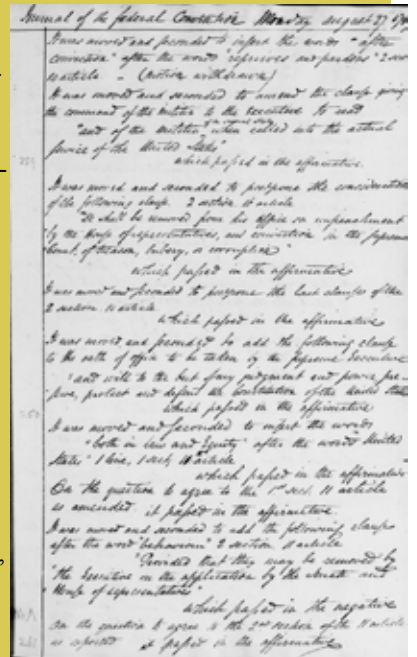 Journal of the federal Convention Monday August 27 1787
It was moved and seconded to insert the words "after
conviction" after the words "reprieves and pardons" 2 sect
10 article (motion withdrawn)
It was moved and seconded to amend the clause giving
the command of the militia to the Executive to read
"and of the militia when called into the actual
service of the United States"
which passed in the affirmative.
It was moved and seconded to postpone the consideration
of the following clause 2 section 10 article
"He shall be removed from his office on impeachment
by the House of representatives, and conviction in the supreme
Court, of treason, bribery, or corruption"
which passed in the affirmative
It was moved and seconded to postpone the last clause of the
2 section 10 article
which passed in the affirmative
It was moved and seconded to add the following clause
to the oath of office to be taken by the supreme Executive
"and will to the best of my judgment and power, pre-
serve, protect and defend the Constitution of the United States
which passed in the affirmative
It was moved and seconded to insert the words
"both in law and Equity" after the words "United
States" 1 line, 1 sect, 11 article
which passed in the affirmative
On the question to agree to the 1st sect. 11 article
as amended. it passed in the affirmative.
It was moved and seconded to add the following clause
after the word "behaviour" 2 section 11 article
"Provided that they may be removed by
the Executive on the application by the Senate and
House of representatives"
which passed in the negative
On the question to agree to the 2nd section of the 11 article
as reported it passed in the affirmative